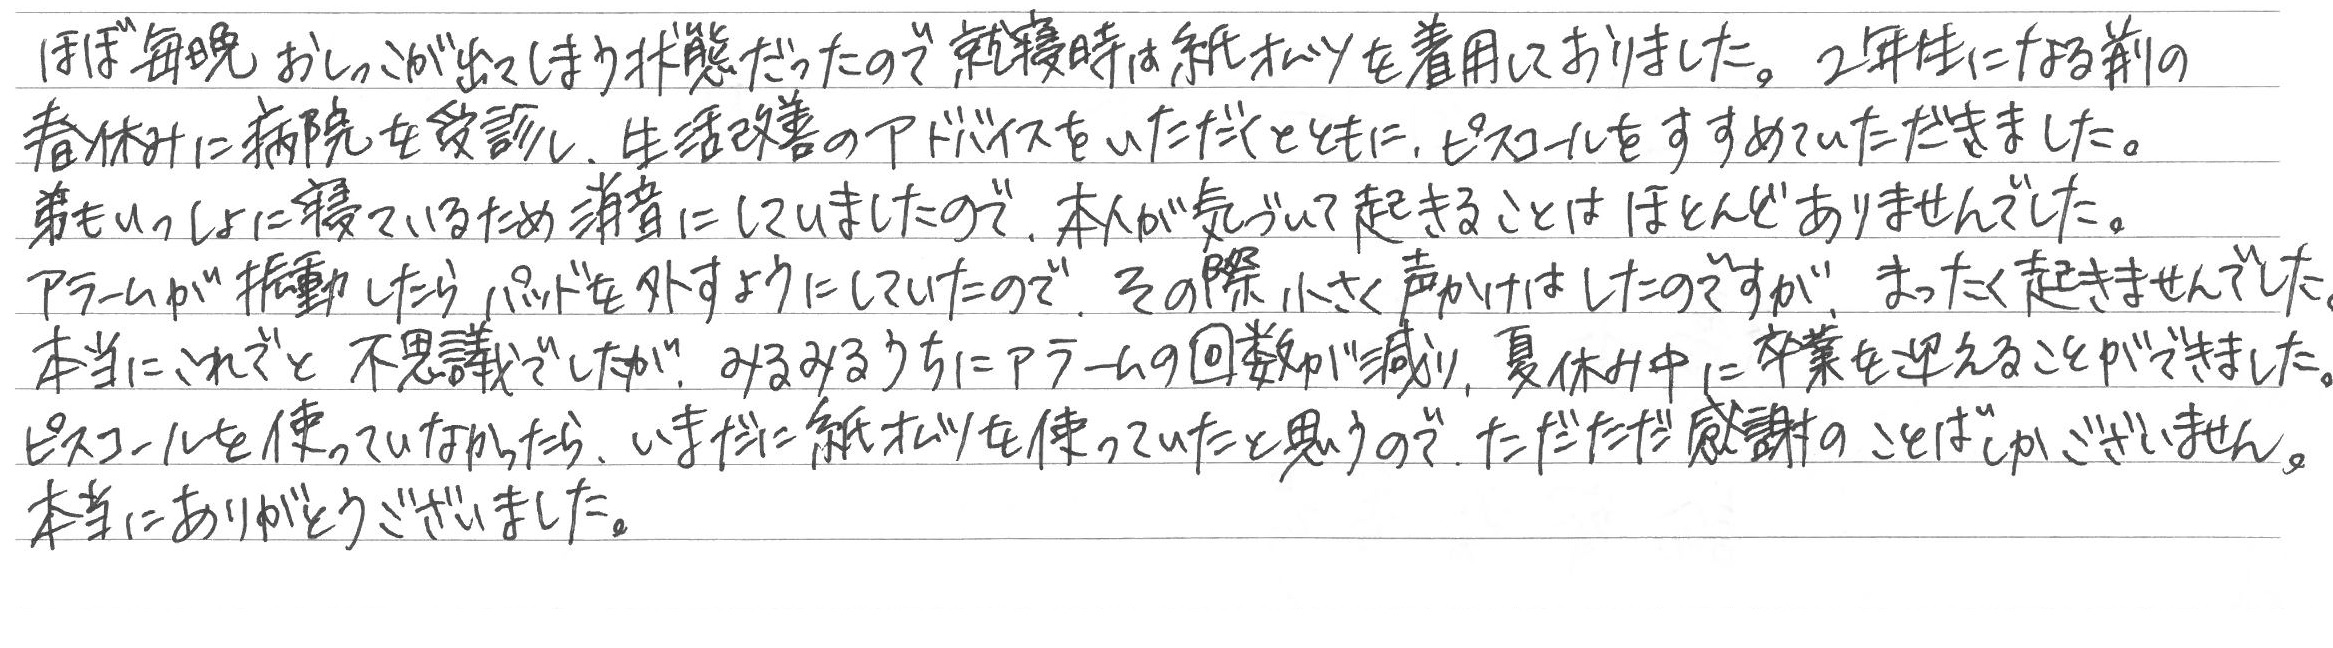 ほぼ毎晩おしっこが出てしまう状態だったので就寝時は紙オムツを着用しておりました。2年生になる前の
春休みに病院を受診し、生活改善のアドバイスをいただくとともに、ピスコールをすすめていただきました。
弟もいっしょに寝ているため消音にしていましたので、本人が気づいて起きることはほとんどありませんでした。
アラームが振動したらパッドを外すようにしていたので、その際小さく声かけはしたのですが、まったく起きませんでした。
本当にこれでと不思議でしたが、みるみるうちにアラームの回数が減り、夏休み中に卒業を迎えることができました。
ピスコールを使っていなかったら、いまだに紙オムツを使っていたと思うので、ただただ感謝のことばしかございません。
本当にありがとうございました。